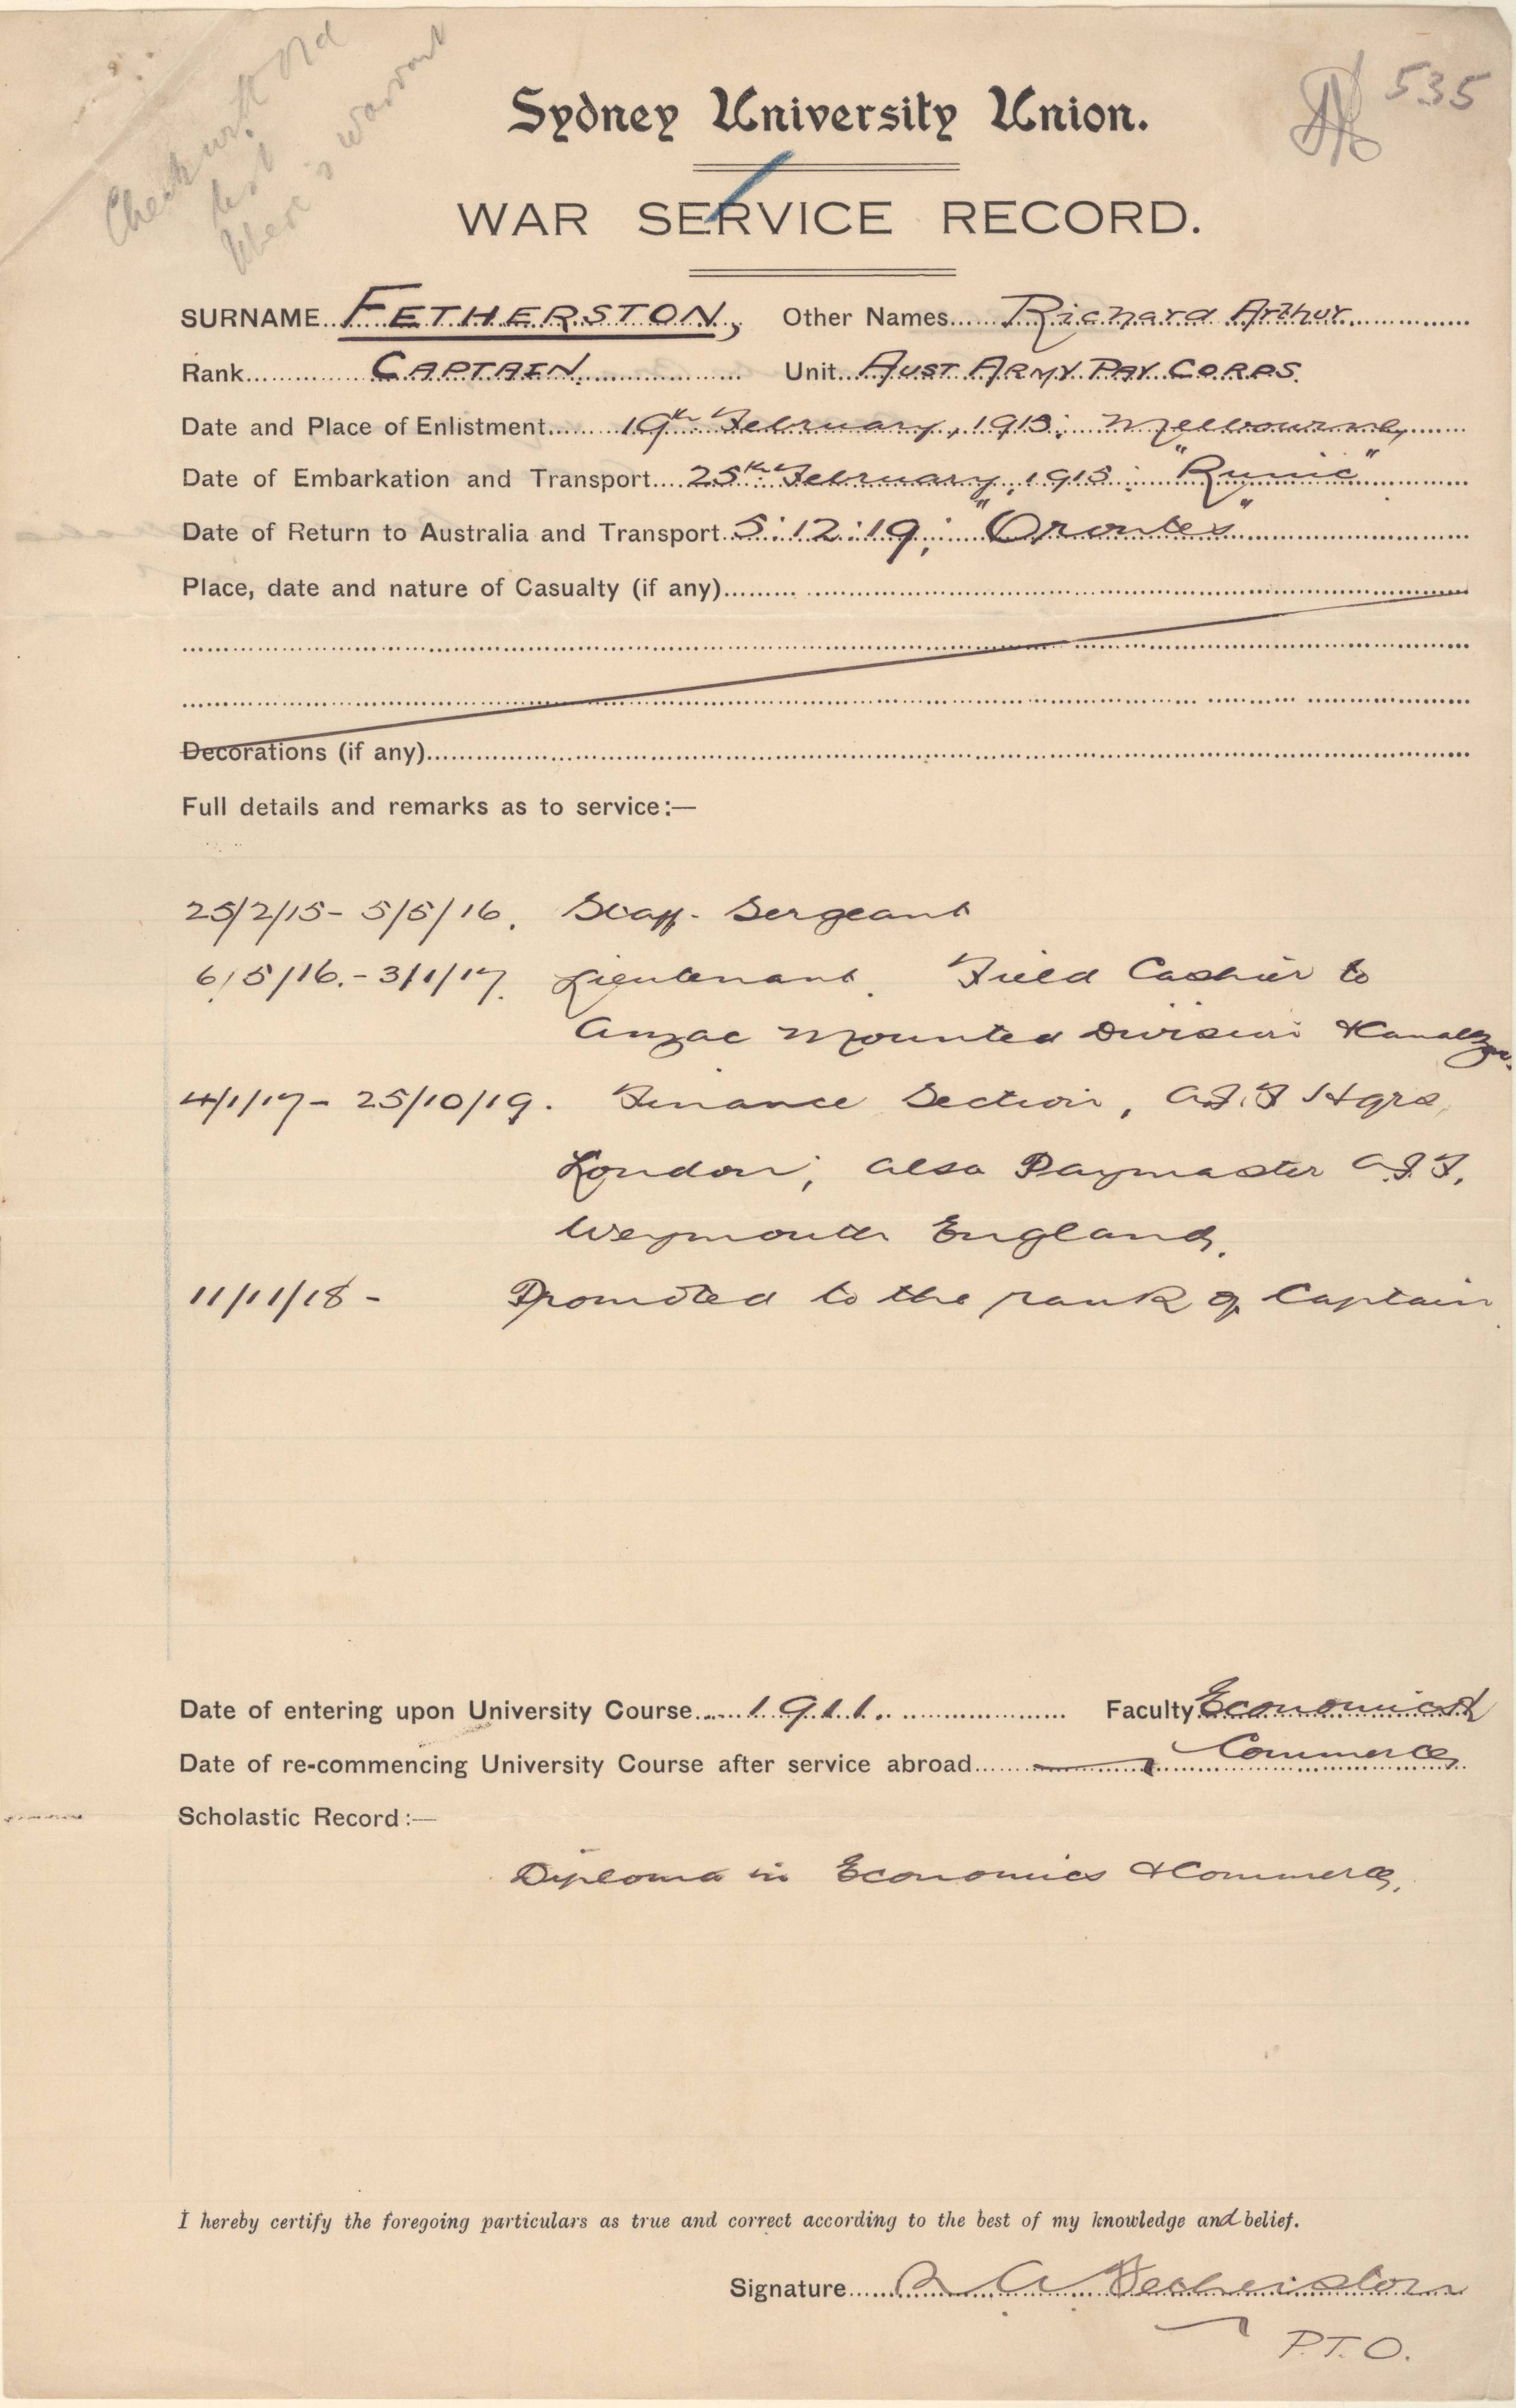 Check with Old
list
Where is warrant
535
Sydney University Union.
WAR SERVICE RECORD.
SURNAME FETHERSTON, Other Names Richard Arthur
Rank CAPTAIN. Unit AUST ARMY PAY CORPS.
Date and Place of Enlistment 19th February, 1915: Melbourne
Date of Embarkation and Transport 25th February, 1915: "Runic"
Date of Return to Australia and Transport 5:12:19; "Orontes"
Place, date and nature of Casualty (if any)
Decorations (if any)
Full details and remarks as to service:—
25/2/15 - 5/5/16. Staff-Sergeant
6/5/16. - 3/1/17. Lieutenant. Field Cashier to
Anzac Mounted Division &
4/1/17 - 25/10/19. Finance Section, A.I.F Hqrs,
London; also Paymaster A.I.F.
Weymouth England.
11/11/18 - Promoted to the rank of Captain.
Date of entering upon University Course 1911. Faculty Economics &
Date of re-commencing University Course after service abroad — Commerce
Scholastic Record:—
Diploma in Economics & Commerce.
I hereby certify the foregoing particulars as true and correct according to the best of my knowledge and belief.
Signature R A Fetherston
P.T.O.